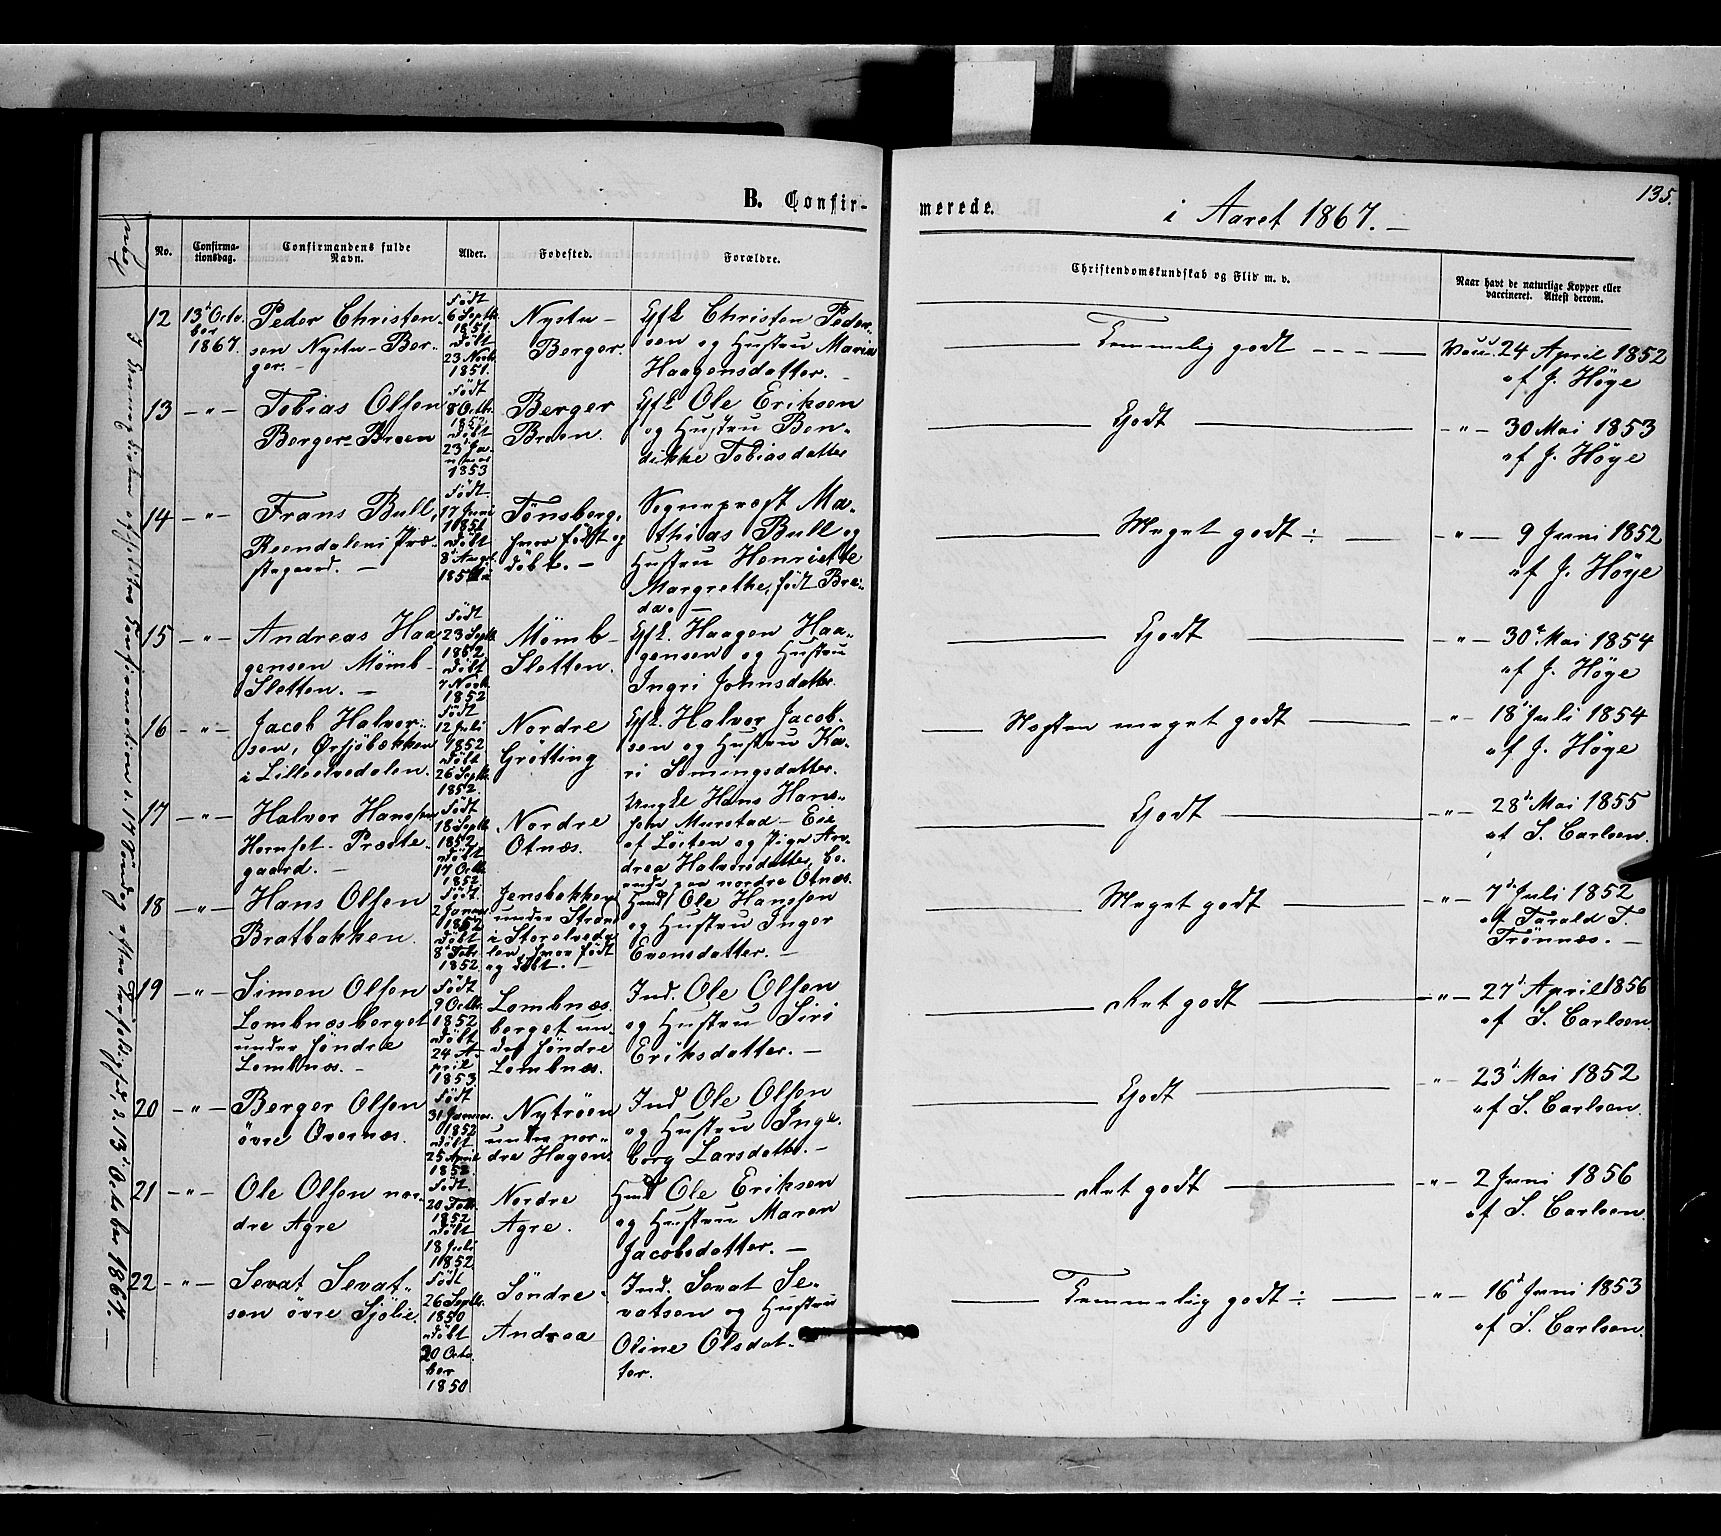 B. Confir-
merede.
i Aaret 1867. —
135.
No.
Confirma-
tionsdag.
Confirmandens fulde
Navn.
Alder.
Fødested.
Forældre.
Christendomskundskab og Flid m. v.
Naar havt de naturlige Kopper eller
vaccineret. Attest derom.
12
13de Octo-
ber
1867.
Peder Christen-
sen Nystu-Ber-
ger. —
Født
6 Septb.
1851.
Døbt
23 Novb.
1851.
Nystu-
Berger.
Gfk Christen Peder-
sen og Hustru Maria
Haagensdatter. —
Temmelig godt
Vacc. 24 April 1852
af J. Höye
13
— " —
Tobias Olsen
Berger Bræen
Født
8 Octb.
1852
Døbt
23 Ja-
nuar
1853
Berger
Bræen.
Gfk Ole Eriksen
og Hustru Ben-
dikke Tobiasdatter
Godt
— " — 30 Mai 1853
af J. Höye
14
— " —
Frans Bull,
Rendalens Præ-
stegaard. —
Født
17 Juni
1851
Døbt
8 Augt.
Tønsberg,
hvor født og
döbt. —
Sognepræst Ma-
thias Bull og
Hustru Henriette
Margrethe, født Bre-
da. —
Meget godt ÷
— " — 9 Juni 1852
af J. Höye
15
— " —
Andreas Haa
gensen Mömb-
Sletten. —
Født
23 Septb.
1852
Døbt
7 Novb.
1852
Mömb-
Sletten.
Gfk. Haagen Haa-
gensen og Hustru
Ingri Johnsdatter.
Godt
— " — 30te Mai 1854
af J. Höye
16
— " —
Jacob Halvor-
sen, Örsjöbækken
i Lilleelvedalen.
Født
12 Juli
1852
Døbt
26 Septb.
1852.
Nordre
Grötting
Gfk. Halvor Jacob-
sen og Hustru Ka-
ri Simingsdatter.
Næsten meget godt
— " — 18de Juli 1854
af J. Höye
17
— " —
Halvor Hanssen
Hornset-Præste-
gaard. —
Født
18 Septb.
1852
Døbt
17 Octb.
1852
Nordre
Otnæs.
Ungke Hans Hans-
sen Murstad-Eie
af Löiten og Pige An-
drea Halvorsdatter, bo-
ende paa nordre Otnæs.
Godt
— " — 28de Mai 1855
af S. Carlsen.
18
— " —
Hans Olsen
Bratbakken.
Født
2 Januar
1852
Døbt
8 Feb.
1852.
Jensbakken
under Strand
i Storelveda-
len, hvor født
og döbt. —
Husmd Ole Hanssen
og Hustru Inger
Evensdatter. —
Meget godt
— " — 7de Juli 1852
af Tarald T.
Trönnæs. —
19
— " —
Simen Olsen
Lombnæsberget
under søndre
Lombnæs. —
Født
9 Octb.
1852
Døbt
24 A-
pril
1853
Lombnæs
berget un-
der søndre
Lombnæs.
Ind. Ole Olsen
og Hustru Siri
Eriksdatter. —
Ret godt
— " — 27de April 1856
af S. Carlsen
20
— " —
Berger Olsen
övre Overnæs.
Født
31 Januar
1852
Døbt
25 April
1852.
Nytröen
under nor-
dre Hagen.
Ind Ole Olsen
og Hustru Inge-
borg Larsdatter. —
Godt
— " — 23de Mai 1852
af S. Carlsen.
21
— " —
Ole Olsen nor-
dre Agre
Født
20 Feb.
1852
Døbt
18 Juli
1852.
Nordre
Agre.
Husmd Ole Eriksen
og Hustru Maren
Jacobsdatter. —
Ret godt
— " — 2 Juni 1856
af S. Carlsen.
22
— " —
Sevat Sevat-
sen övre Sjölie.
Født
26 Septb.
1850
Døbt
20 Octo-
ber
1850
Söndre
Andraa
Ind. Sevat Se-
vatsen og Hustru
Oline Olsdat-
ter.
Temmelig godt ÷
— " — 16de Juni 1853
af S. Carlsen.